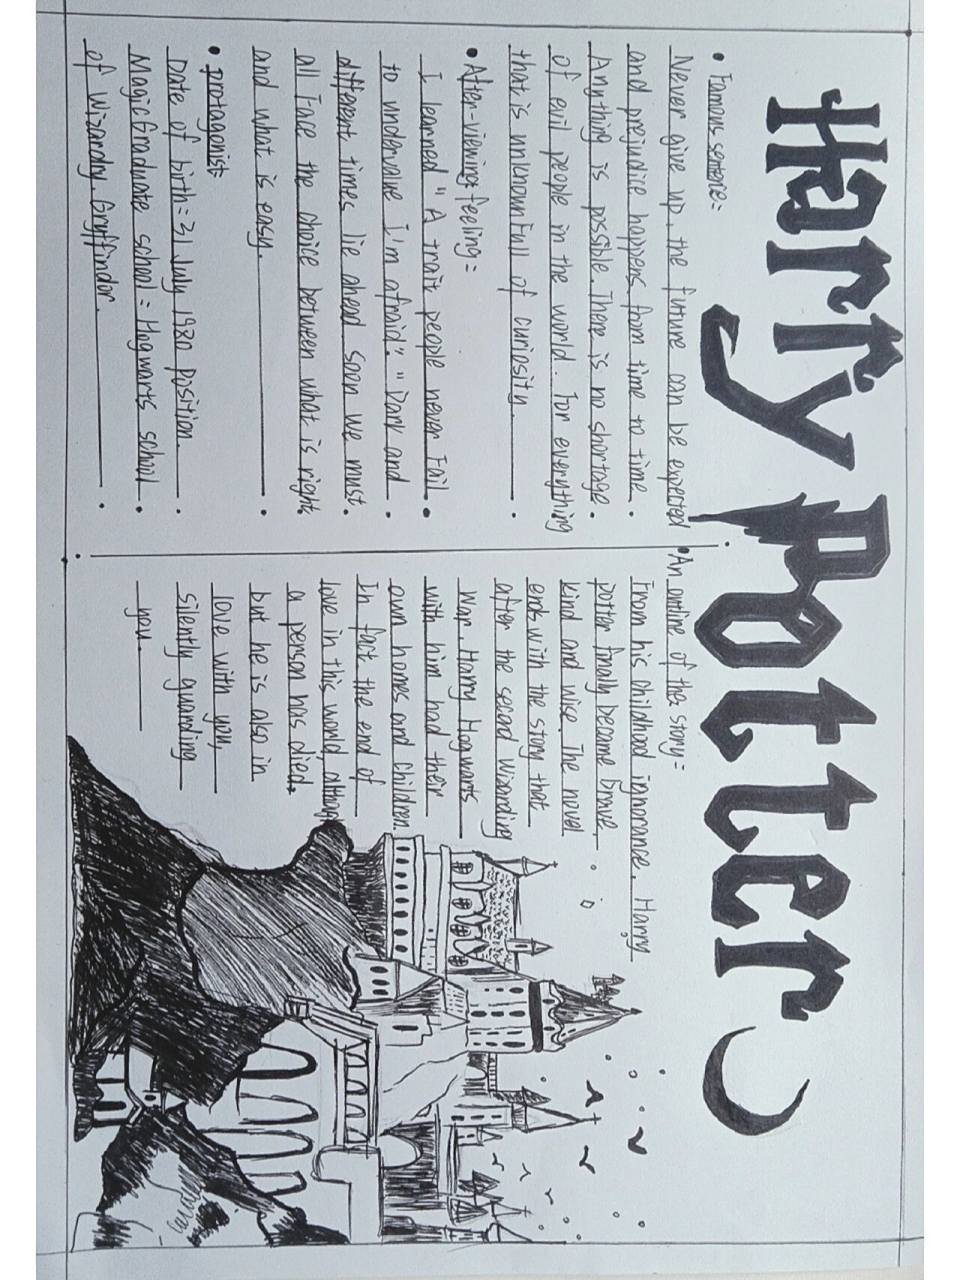 Harry Potter
• Famous sentence:
Never give up, the future can be expected
and prejudice happens from time to time.
Anything is possible. There is no shortage
of evil people in the world. For everything
that is unknown full of curiosity.
• After-viewing feeling:
I learned "A trait people never fail
to undervalue I'm afraid." "Dark and
different times lie ahead soon we must
all face the choice between what is right
and what is easy.
• protagonist:
Date of birth: 31 July 1980 position.
Magic Graduate school: Hogwarts school
of wizardry. Gryffindor.
• An outline of the story:
From his childhood ignorance. Harry
potter finally become brave,
kind and wise. The novel
ends with the story that
after the second wizarding
war. Harry Hogwarts
with him had their
own homes and children
In fact the end of
love in this world, although
a person has died.
but he is also in
love with you,
silently guarding
you.